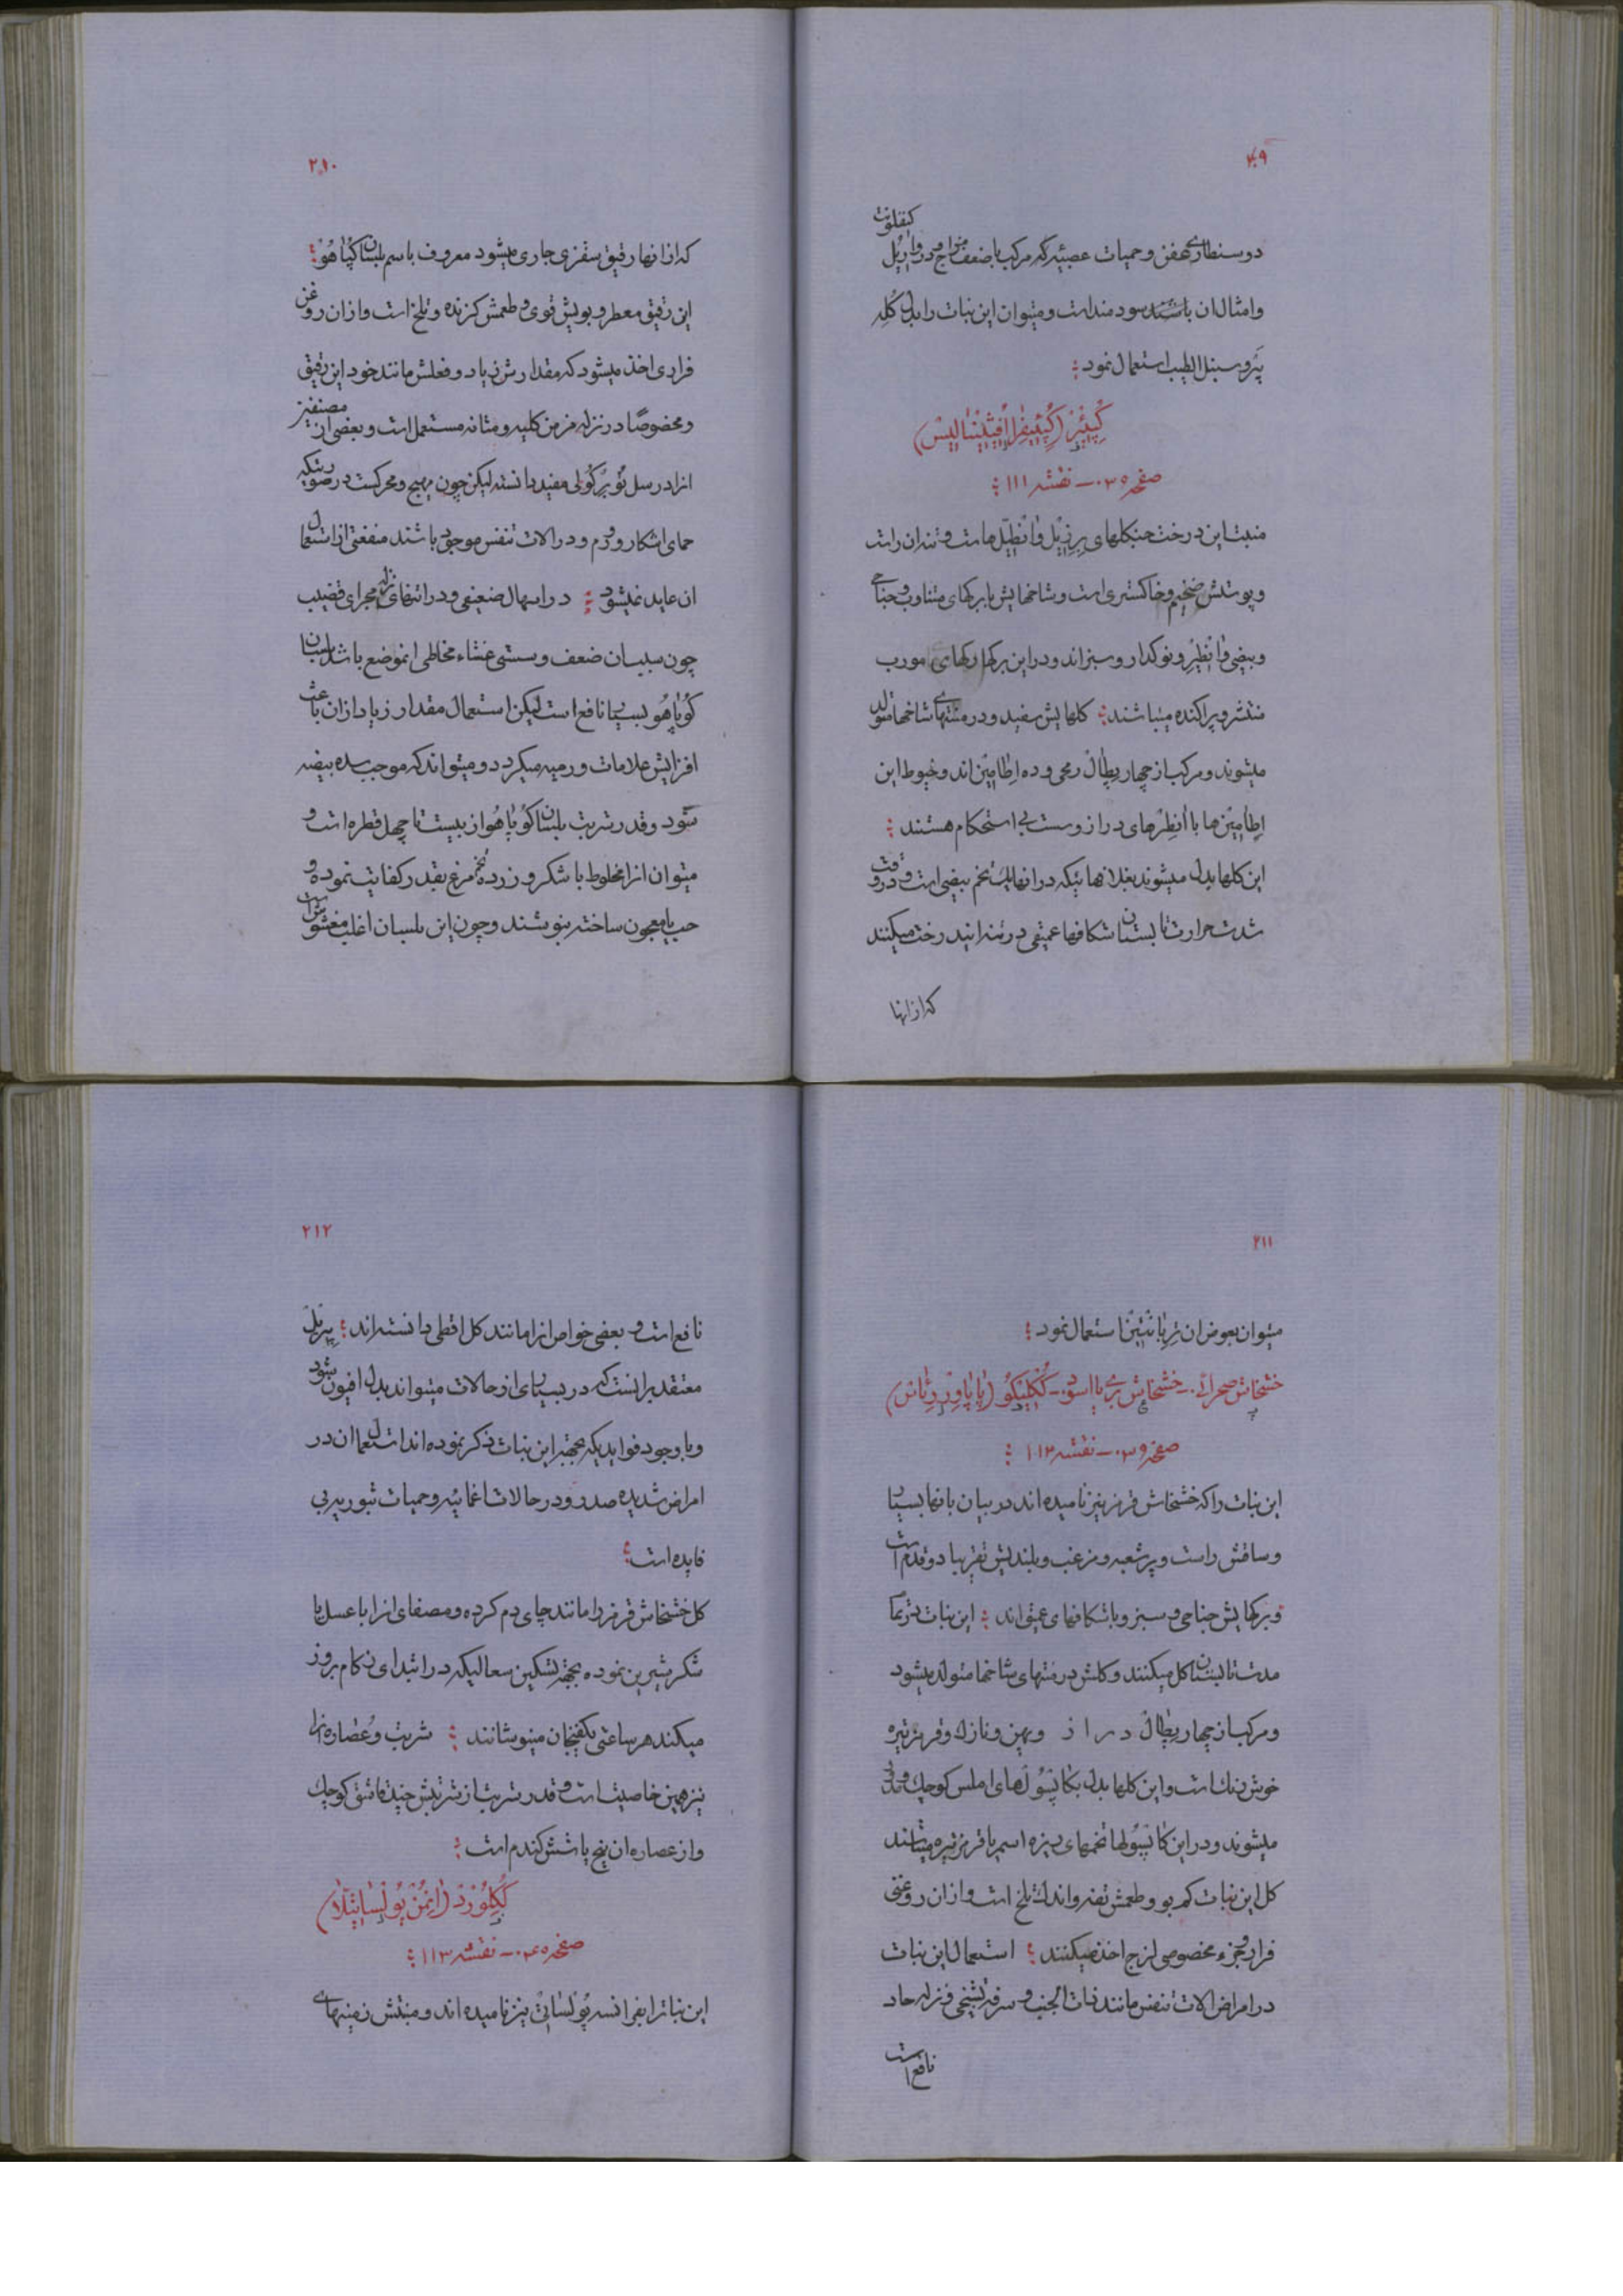 ۲۰۹
دوسنطاریای عفن و حمیات عصبیه که مرکب با ضعف مزاج
و امثال ان باشند سودمند است و میتوان این نبات را بدل
و سنبل الطیب استعمال نمود
صفحه ۰۳۵ — نقشه ۱۱۱
منبت این درخت جنکلهای برزیل و انطیل هاست و تنه ان راست
و پوستش ضخیم و خاکستری است و شاخهایش با برکهای متناوب و جناحی
و بیضی و نوکدار و سبز اند و در این برکها رکهای مورب
منتشر و پراکنده میباشند کلهایش سفید و در منتهای شاخها متولد
میشوند و مرکب از چهار پطال رمحی و ده اطامین اند و خیوط این
اطامین ها با انطرهای دراز و سست بی استحکام هستند
این کلها بدل میشوند بغلافهائیکه در انها یک تخم بیضی است و در وقت
شدت حرارت تابستان شکافها عمیقی در تنه این درخت میکنند
که از انها
۲۱۰
که از انها رقیق سقزی جاری میشود معروف باسم بلسان کپاهو
این رقیق معطر و بویش قوی و طعمش کزنده و تلخ است و از ان روغن
فراری اخذ میشود که مقدارش زیاد و فعلش مانند خود این رقیق
و مخصوصا در نزله مزمن کلیه و مثانه مستعمل است و بعضی از مصنفین
انرا در سل توبرکولی مفید دانسته لیکن چون مهیج و محرکست در صورتیکه
حمای اشکار و ورم در الات تنفس موجود باشند منفعتی از استعمال
ان عاید نمیشود در اسهال ضعیفی و در انتهای نزله مجرای قضیب
چون سبب ان ضعف و سستی غشاء مخاطی انموضع باشد بلسان
کوپاهو بسیار نافع است لیکن استعمال مقدار زیاد از ان باعث
افزایش علامات ورمیه میکردد و میتواند که موجب سده بیضه
شود و قدر شربت بلسان کوپاهو از بیست تا چهل قطره است و
میتوان انرا مخلوط با شکر و زرده تخم مرغ بقدر کفایت نموده و
حب یا معجون ساخته بنوشند و چون این بلسان اغلب مغشوش است
۲۱۱
میتوان بعوض ان تربانتین استعمال نمود
خشخاش صحرائی — خشخاش بری یا اسود — ککلیکو (پاپاور رئاس)
صفحه ۰۳۹ — نقشه ۱۱۲
این نبات را که خشخاش قرمز نیز نامیده اند در بیابانها بسیار
و ساقش راست و پرشعبه و مزغب و بلندیش تقریبا دو قدم است
و برکهایش جناحی و سبز و با شکافهای عمیق اند این نبات در تمام
مدت تابستان کل میکنند و کلش در منتهای شاخها متولد میشود
و مرکب از چهار پطال دراز و پهن و نازک و قرمز تیره
خوش رنک است و این کلها بدل بکاپسولهای املس کوچک
میشوند و در این کاپسولها تخمهای ریزه اسمر یا قرمز تیره میباشند
کل این نبات کم بو و طعمش تفه و اندک تلخ است و از ان روغنی
فرار و جزء مخصوصی لزج اخذ میکنند استعمال این نبات
در امراض الات تنفس مانند ذات الجنب و سرفه تشنجی و نزله حاد
نافع است
۲۱۲
نافع است و بعضی خواص انرا مانند کل اقطی دانسته اند
معتقد برانست که در بسیاری از حالات میتواند بدل افیون شود
و با وجود فوایدیکه بجهته این نبات ذکر نموده اند استعمال ان در
امراض شدیده صدر و در حالات اغمائیه و حمیات شور پر بی
فایده است
کل خشخاش قرمز را مانند چای دم کرده و مصفای انرا با عسل یا
شکر شیرین نموده بجهته تسکین سعالیکه در ابتدای زکام بروز
میکند هر ساعتی یکفنجان مینوشانند شربت و عصاره انرا
نیز همین خاصیت است و قدر شربت از شربتش چند قاشق کوچک
و از عصاره ان پنج یا شش کندم است
ککلورد (انمن پولساتیلا)
صفحه ۰۴۰ — نقشه ۱۱۳
این نباترا بفرانسه پولساتی نیز نامیده اند و منبتش زمینهای